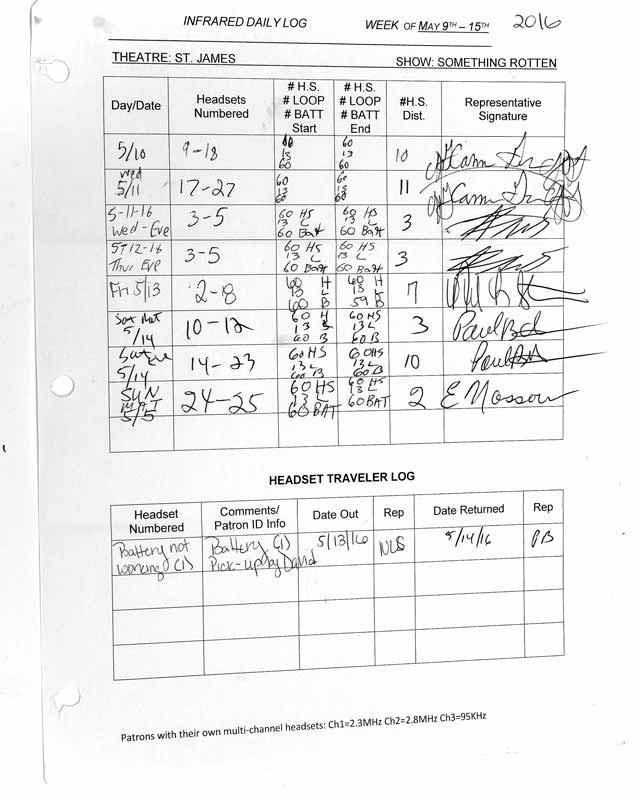 INFRARED DAILY LOG WEEK OF MAY 9TH – 15TH 2016
THEATRE: ST. JAMES SHOW: SOMETHING ROTTEN
Day/Date Headsets Numbered # H.S. # LOOP # BATT Start # H.S. # LOOP # BATT End #H.S. Dist. Representative Signature
5/10 9-18 60 13 60 60 13 60 10
wed 5/11 17-27 60 13 60 60 13 60 11
5-11-16 Wed-Eve 3-5 60 HS 13 L 60 Batt 60 HS 13 L 60 Batt 3
5-12-16 Thur Eve 3-5 60 HS 13 L 60 Batt 60 HS 13 L 60 Batt 3
Fri 5/13 2-8 60 H 13 L 60 B 60 H 13 L 59 B 7
Sat Mat 5/14 10-12 60 H 13 L 60 B 60 HS 13 L 60 B 3
Sat Eve 5/14 14-23 60 HS 13 L 60 B 60 HS 13 L 60 B 10
SUN MAT 5/5 24-25 60 HS 13 L 60 BAT 60 HS 13 L 60 BAT 2 E Nosson
HEADSET TRAVELER LOG
Headset Numbered Comments/ Patron ID Info Date Out Rep Date Returned Rep
Battery not working (1) Battery (1) Pick-up by David 5/13/16 NLS 5/14/16 PB
Patrons with their own multi-channel headsets: Ch1=2.3MHz Ch2=2.8MHz Ch3=95KHz